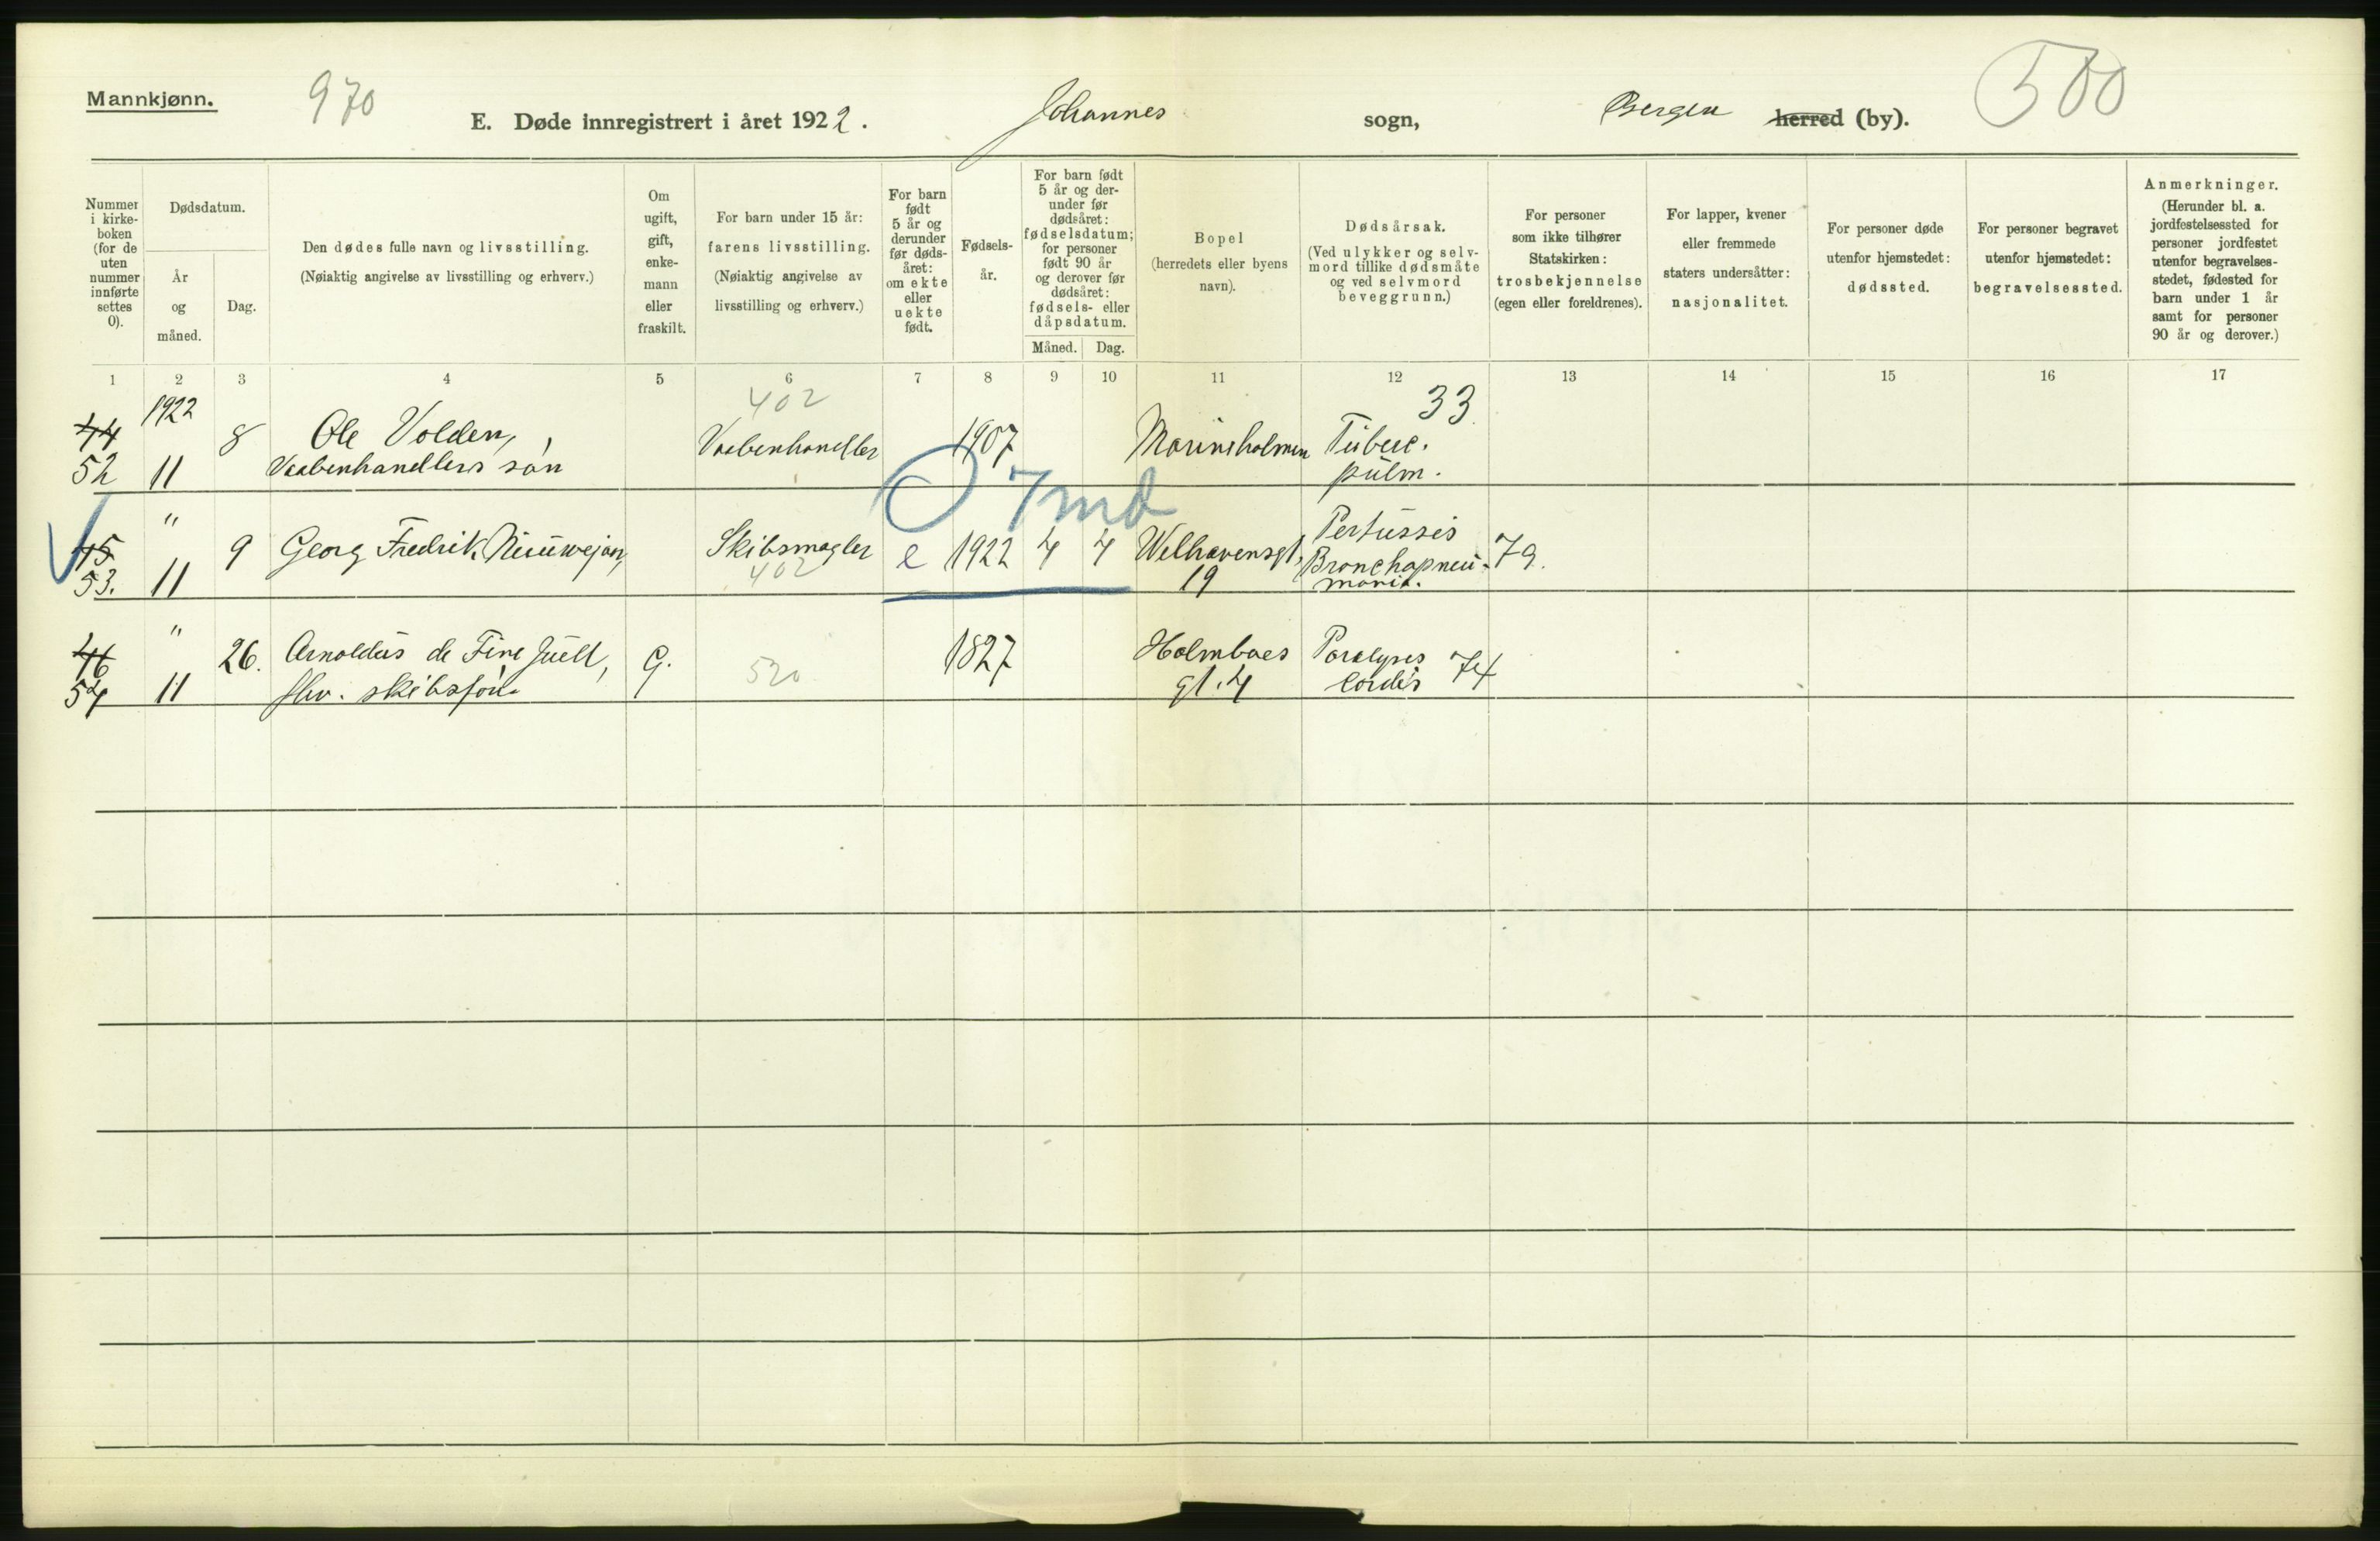 Mannkjønn.
970
E. Døde innregistrert i året 1922.
Johannes
sogn,
Bergen
herred (by).
500
Nummer
i kirke-
boken
(for de
uten
nummer
innførte
settes
0).
Dødsdatum.
År
og
måned.
Dag.
Den dødes fulle navn og livsstilling.
(Nøiaktig angivelse av livsstilling og erhverv.)
Om
ugift,
gift,
enke-
mann
eller
fraskilt.
For barn under 15 år:
farens livsstilling.
(Nøiaktig angivelse av
livsstilling og erhverv.)
For barn
født
5 år og
derunder
før døds-
året:
om ekte
eller
uekte
født.
Fødsels-
år.
For barn født
5 år og der-
under før
dødsåret:
fødselsdatum;
for personer
født 90 år
og derover før
dødsåret:
fødsels- eller
dåpsdatum.
Måned. Dag.
Bopel
(herredets eller byens
navn).
Dødsårsak.
(Ved ulykker og selv-
mord tillike dødsmåte
og ved selvmord
beveggrunn.)
For personer
som ikke tilhører
Statskirken:
trosbekjennelse
(egen eller foreldrenes).
For lapper, kvener
eller fremmede
staters undersåtter:
nasjonalitet.
For personer døde
utenfor hjemstedet:
dødssted.
For personer begravet
utenfor hjemstedet:
begravelsessted.
Anmerkninger.
(Herunder bl. a.
jordfestelsessted for
personer jordfestet
utenfor begravelses-
stedet, fødested for
barn under 1 år
samt for personer
90 år og derover.)
1 2 3 4 5 6 7 8 9 10 11 12 13 14 15 16 17
44
52
1922
11
8
Ole Volden,
Vaabenhandlers søn
402
Vaabenhandler
1907
Marineholmen
33
Tuberc.
pulm.
45
53.
"
11
9
Georg Fredrik
Skibsmægler
402
0 7 md
e
1922
4
4
Welhavensgt,
19
Pertussis
Bronchopneu-
monia.
79.
46
54
"
11
26.
Arnoldus de Fine Juell,
fhv. skibsfør.
G.
520
1827
Holmboes
gt. 4
Paralysis
cordis
74